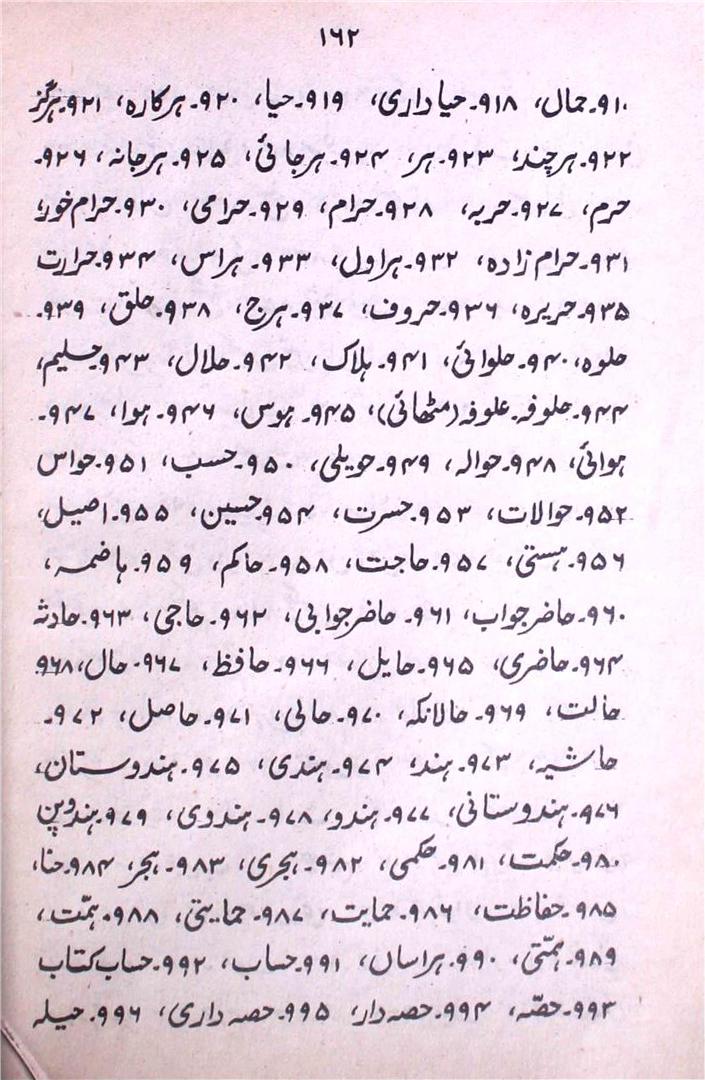 ۱۶۲
۹۱۰۔جمال، ۹۱۸۔حیاداری، ۹۱۹۔حیا، ۹۲۰۔ہرکارہ، ۹۲۱۔ہرگز
۹۲۲۔ہرچند، ۹۲۳۔ہر، ۹۲۴۔ہرجائی، ۹۲۵۔ہرجانہ، ۹۲۶۔
حرم، ۹۲۷۔حربہ، ۹۲۸۔حرام، ۹۲۹۔حرامی، ۹۳۰۔حرام خور،
۹۳۱۔حرام زادہ، ۹۳۲۔ہراول، ۹۳۳۔ہراس، ۹۳۴۔حرارت
۹۳۵۔حریرہ، ۹۳۶۔حروف، ۹۳۷۔ہرج، ۹۳۸۔حلق، ۹۳۹۔
حلوہ، ۹۴۰۔حلوائی، ۹۴۱۔ہلاک، ۹۴۲۔حلال، ۹۴۳۔حلیم،
۹۴۴۔حلوفہ۔علوفہ(مٹھائی)، ۹۴۵۔ہوس، ۹۴۶۔ہوا، ۹۴۷۔
ہوائی، ۹۴۸۔حوالہ، ۹۴۹۔حویلی، ۹۵۰۔حسب، ۹۵۱۔حواس
۹۵۲۔حوالات، ۹۵۳۔حسرت، ۹۵۴۔حسین، ۹۵۵۔اصیل،
۹۵۶۔ہستی، ۹۵۷۔حاجت، ۹۵۸۔حاکم، ۹۵۹۔ہاضمہ،
۹۶۰۔حاضرجواب، ۹۶۱۔حاضرجوابی، ۹۶۲۔حاجی، ۹۶۳۔حادثہ
۹۶۴۔حاضری، ۹۶۵۔حایل، ۹۶۶۔حافظ، ۹۶۷۔حال، ۹۶۸۔
حالت، ۹۶۹۔حالانکہ، ۹۷۰۔حالی، ۹۷۱۔حاصل، ۹۷۲۔
حاشیہ، ۹۷۳۔ہند، ۹۷۴۔ہندی، ۹۷۵۔ہندوستان،
۹۷۶۔ہندوستانی، ۹۷۷۔ہندو، ۹۷۸۔ہندوی، ۹۷۹۔ہندوپن
۹۸۰۔حکمت، ۹۸۱۔حکمی، ۹۸۲۔ہجری، ۹۸۳۔ہجر، ۹۸۴۔حنا،
۹۸۵۔حفاظت، ۹۸۶۔حمایت، ۹۸۷۔حمایتی، ۹۸۸۔ہمّت،
۹۸۹۔ہمّتی، ۹۹۰۔ہراساں، ۹۹۱۔حساب، ۹۹۲۔حساب کتاب
۹۹۳۔حصّہ، ۹۹۴۔حصہ دار، ۹۹۵۔حصہ داری، ۹۹۶۔حیلہ